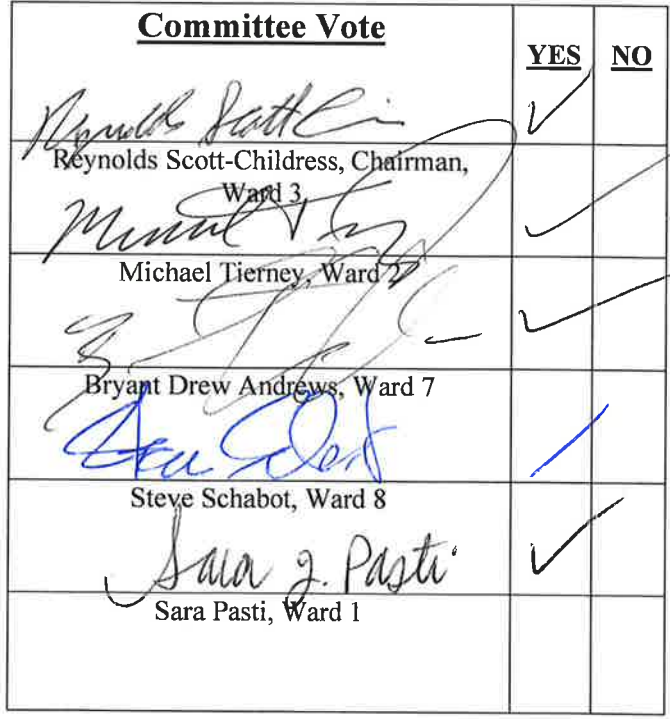 Committee Vote
YES NO
Reynolds Scott Chi
Reynolds Scott-Childress, Chairman,
Ward 3
Michael Tierney, Ward 2
Bryant Drew Andrews, Ward 7
Steve Schabot, Ward 8
Sara J. Pasti
Sara Pasti, Ward 1